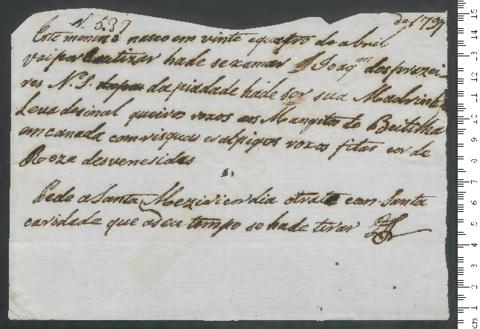 N. 539 de 1797
Este menino naceo em vinte e quatro de abril
vai por bautizar hade se xamar Joaqm. des prazei
res N. S. da piadade hade ser sua Madrinha
Leva de sinal queiros roxos as Mangitas de Beitilha
em canada com risquas e alpigos roxos fitas cor de
Roza desvenesidas
Pede a Santa Meziricordia o trate con Santa
caridade que a seu tempo se hade tirar